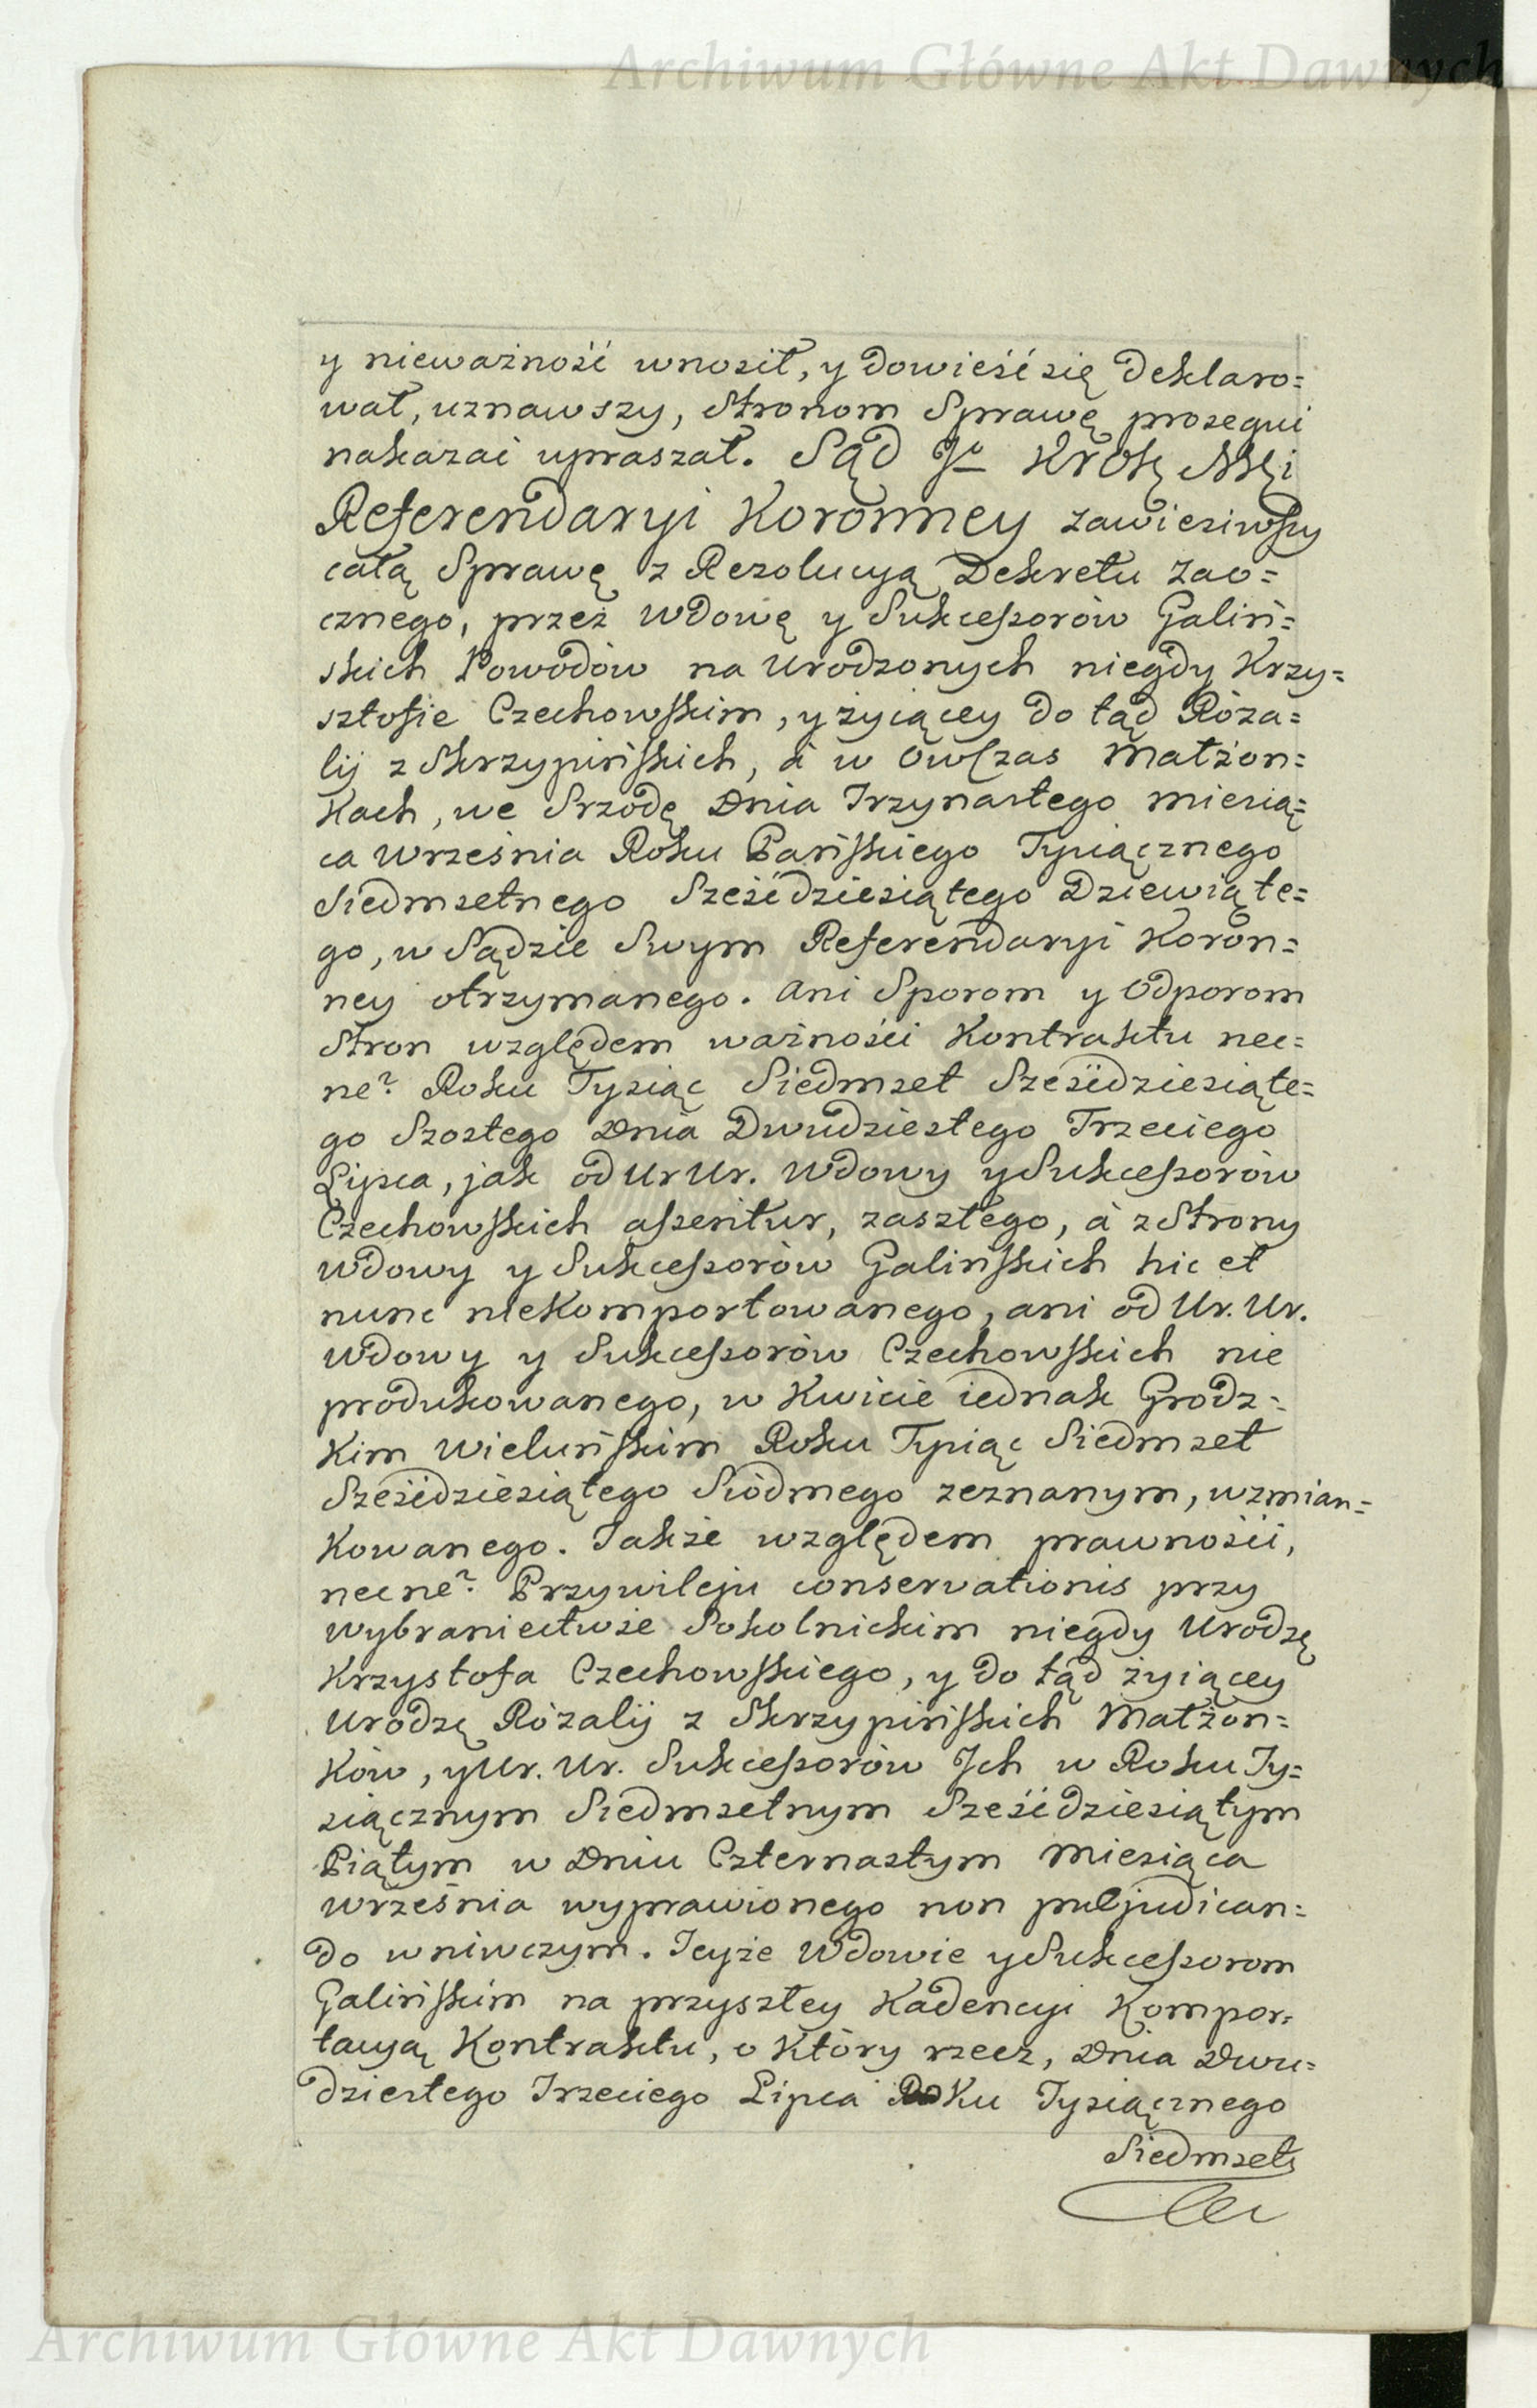 Archiwum Główne Akt Dawnych
y nieważność wnosił, y dowieść się deklaro=
wał, uznawszy, Stronom Sprawę prosequi
nakazać upraszał. Sąd Jo Krolę Mści
Referendaryi Koronney zawiesiwszy
całą Sprawę z Rezolucyą Dekretu Zao=
cznego, przez Wdowę y Sukcessorów Galiń=
skich Powodów na Urodzonych niegdy Krzy=
sztofie Czechowskim, y żyiącey do tąd Róza=
lij z Skrzypińskich, á w ówczas Małżon=
kach, we Srzodę Dnia Trzynastego miesią=
ca Września Roku Pańskiego Tysiącznego
Siedmsetnego Sześćdziesiątego Dziewiąte=
go, w Sądzie Swym Referendaryi Koron=
ney otrzymanego. Ani Sporom y Odporom
Stron względem ważności Kontraktu nec=
ne? Roku Tysiąc Siedmset Sześćdziesiąte=
go Szostego Dnia Dwudziestego Trzeciego
Lipca, jak od Ur Ur. Wdowy y Sukcessorów
Czechowskich asseritur, zaszłego, á z Strony
Wdowy y Sukcessorów Galińskich hic et
nunc niekomportowanego, ani od Ur. Ur.
Wdowy y Sukcessorów Czechowskich nie
produkowanego, w Kwicie iednak Grodz=
kim Wieluńskim Roku Tysiąc Siedmset
Sześćdziesiątego Siódmego zeznanym, wzmian=
kowanego. Także względem prawności,
necne? Przywileju conservationis przy
Wybraniectwie Sokolnickim niegdy Urodzę
Krzystofa Czechowskiego, y do tąd żyiącey
Urodzę Rózalij z Skrzypińskich Małżon=
ków, y Ur. Ur. Sukcessorów Jch w Roku Ty=
siącznym Siedmsetnym Sześćdziesiątym
Piątym w Dniu Czternastym Miesiąca
Września wyprawionego non præjudican=
do wniwczym. Teyże Wdowie y Sukcessorom
Galińskim na przyszłey Kadencyi Kompor=
tacyą Kontraktu, o który rzecz, Dnia Dwu=
dziestego Trzeciego Lipca Roku Tysiącznego
Siedmset
Archiwum Główne Akt Dawnych